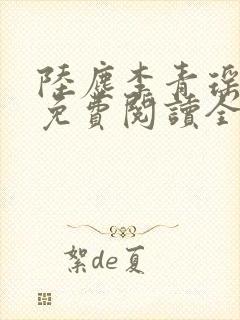 陸塵李青瑶
免費閱讀全
絮de夏